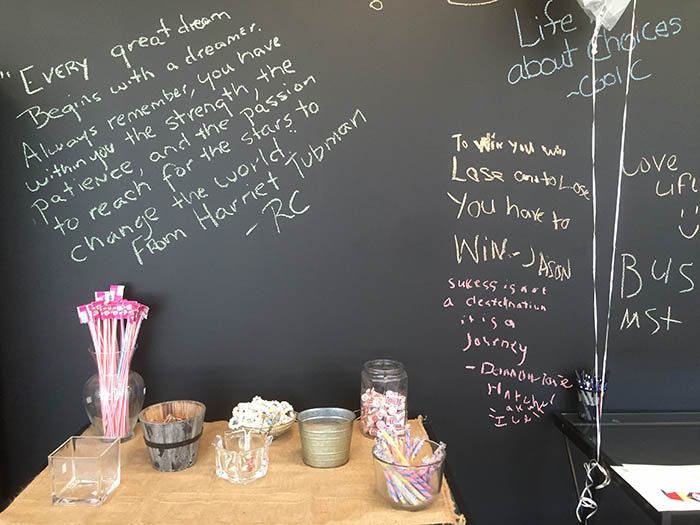 "Every great dream
Begins with a dreamer.
Always remember, you have
within you the strength, the
patience, and the passion
to reach for the stars to
change the world."
From Harriet Tubman
-RC
Life
about choices
~Cool C
To win you
Lose and to Lose
You have to
WiN -JASON
sukess is not
a
it is a
Jorney
Love
Life
BUS
MST